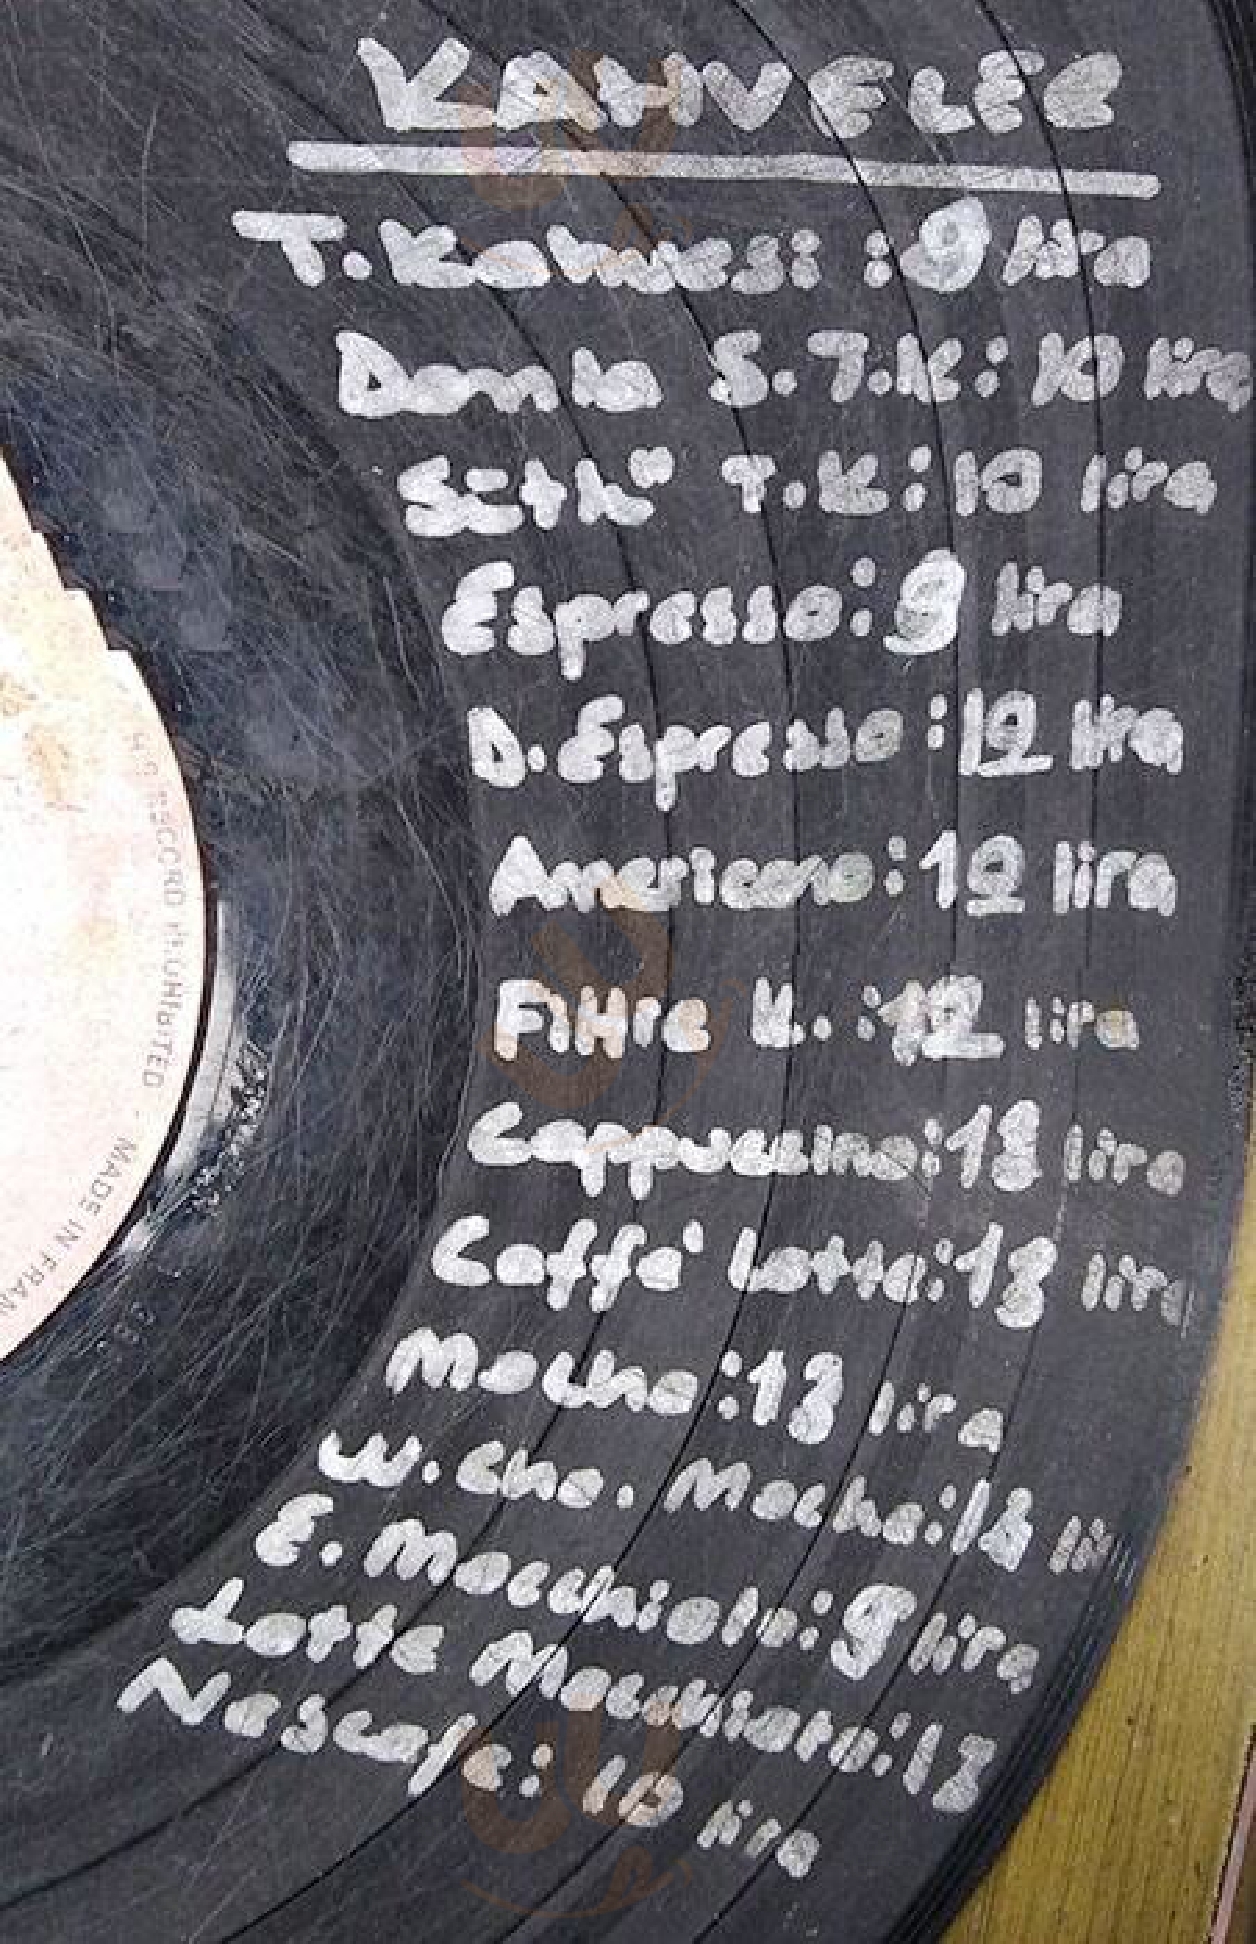 KAHVELER
T.Kahvesi : 9 lira
Damla S. T.K: 10 lira
Sütlü T.K: 10 lira
Espresso: 9 lira
D.Espresso: 12 lira
Americano: 12 lira
Filtre K. : 12 lira
Cappuccino: 13 lira
Caffe' Latte: 13 lira
Mocha: 13 lira
W.Cho. Mocha: 13 lira
E.Macchiato: 9 lira
Latte Macchiato: 13
Nescafe: 10 lira
MADE IN FRAN